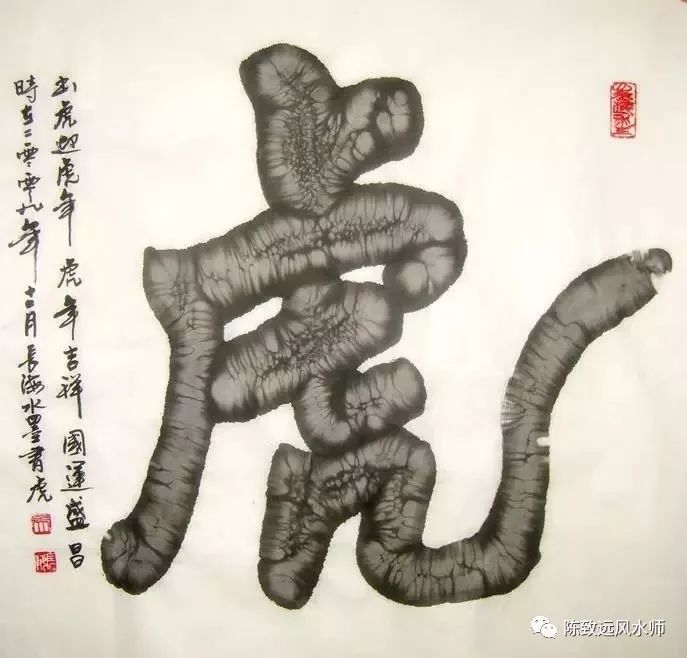 虎
书虎迎虎年 虎年吉祥 國運盛昌
時在二零零九年十二月長海水墨書虎
陈致远风水师